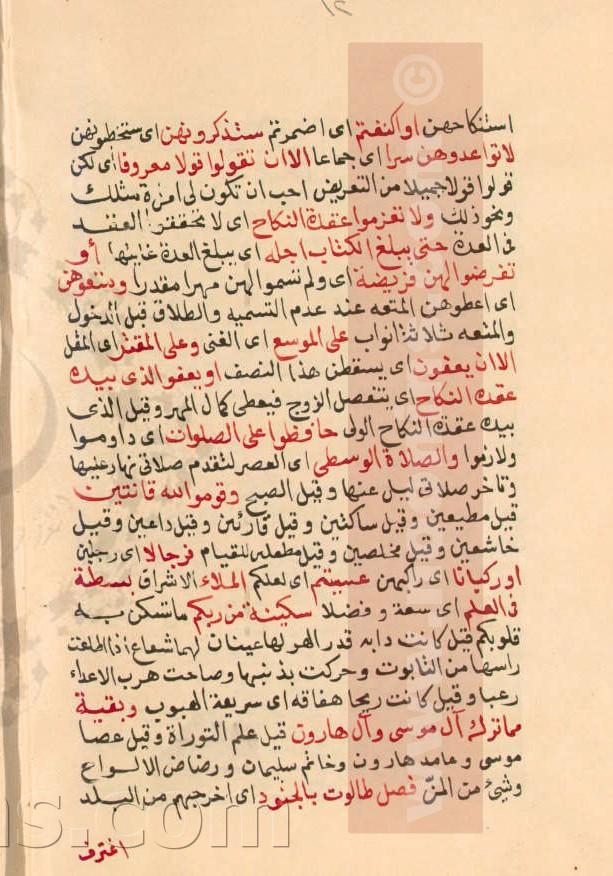 ١٢
استنكاحهن او اكننتم اى اضمرتم ستذكرونهن اى ستخطبونهن
لا تواعدوهن سرا اى جماعا الا ان تقولوا قولا معروفا اى لكن
قولوا قولا جميلا من التعريض احب ان تكون لى امرة مثلك
ونحو ذلك ولا تعزموا عقدة النكاح اى لا تحققوا العقد
فى العدة حتى يبلغ الكتاب اجله اى يبلغ العدة غايتها أو
تفرضوا لهن فريضة اى ولم تسموا لهن مهرا مقدرا ومتعوهن
اى اعطوهن المتعه عند عدم التسميه والطلاق قبل الدخول
والمتعه ثلاثة اثواب على الموسع اى الغنى وعلى المقتر اى المقل
الا ان يعفون اى يسقطن هذا النصف او يعفو الذى بيده
عقدة النكاح اى يتفضل الزوج فيعطى كمال المهر وقيل الذى
بيده عقدة النكاح الولى حافظوا على الصلوات اى داوموا
ولازموا والصلاة الوسطى اى العصر لتقدم صلاتى نهار عنها
وتاخر صلاتى ليل عنها وقيل الصبح وقوموا لله قانتين
قيل مطيعين وقيل ساكتين وقيل قارئين وقيل داعين وقيل
خاشعين وقيل مخلصين وقيل للقيام فرجالا اى رجلين
او ركبانا اى راكبين عسيتم اى لعلكم الملاء الاشراف بسطة
فى العلم اى سعة و فضلا سكينة من ربكم ما تسكن به
قلوبكم قيل كانت دابه قدر الهر لها عينان لهما شعاع اذا اطلعت
راسها من التابوت وحركت بذنبها وصاحت هرب الاعداء
رعبا وقيل كانت ريحا هفافه اى سريعة الهبوب وبقية
مما ترك آل موسى وآل هارون قيل علم التوراة وقيل عصا
موسى و عامه هارون وخاتم سليمان و رضاض الالواح
وشئ من المنّ فصل طالوت بالجنود اى اخرجهم من البلد
اغترف